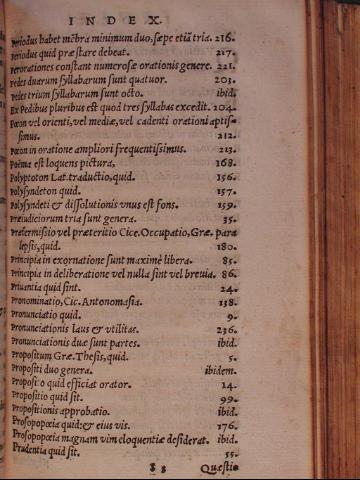 INDEX.
Periodus habet mēbra minimum duo, sæpe etiā tria. 216.
Periodus quid præstare debeat. 217.
Perorationes constant numerosæ orationis genere. 221.
Pedes duarum syllabarum sunt quatuor. 203.
Pedes trium syllabarum sunt octo. ibid.
Ex Pedibus pluribus est quod tres syllabas excedit. 204.
Pæon vel orienti, vel mediæ, vel cadenti orationi aptis-
simus. 212.
Pæon in oratione ampliori frequentissimus. 213.
Poëma est loquens pictura, 168.
Polyptoton Lat. traductio, quid. 156.
Polysyndeton quid. 157.
Polysyndeti & dissolutionis vnus est fons. 159.
Præiudiciorum tria sunt genera. 35.
Prætermissio vel præteritio Cice. Occupatio, Græ. para
lepsis, quid. 180.
Principia in exornatione sunt maximè libera. 85.
Principia in deliberatione vel nulla sint vel breuia. 86.
Priuantia quid sint. 24.
Pronominatio, Cic. Antonomasia. 138.
Pronunciatio quid. 9.
Pronunciationis laus & vtilitas. 236.
Pronunciationis duæ sunt partes. ibid.
Propositum Græ. Thesis, quid. 5.
Propositi duo genera. ibidem.
Propositio quid efficiat orator. 14.
Propositio quid sit. 99.
Propositionis approbatio. ibid.
Prosopopœia quid: & eius vis. 176.
Prosopopœia magnam vim eloquentiæ desiderat. ibid.
Prudentia quid sit. 55.
Quæstio